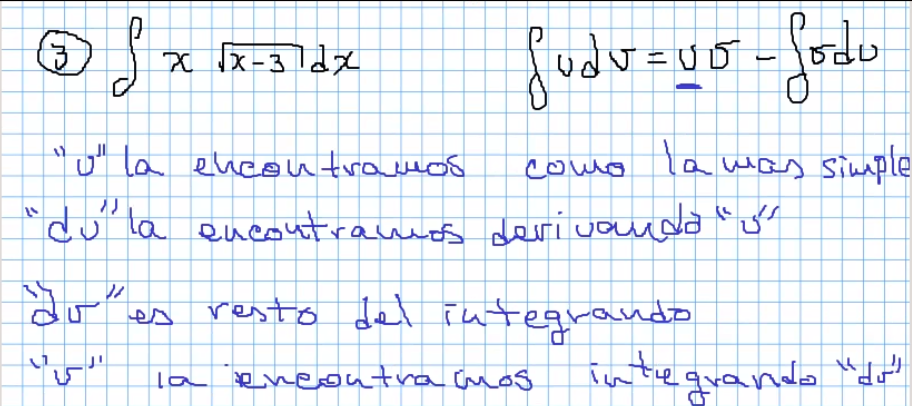 ③ ∫ x √(x-3) dx ∫ u dv = u v - ∫ v du
"u" la encontramos como la mas simple
"du" la encontramos derivando "u"
"dv" es resto del integrando
"v" la encontramos integrando "dv"